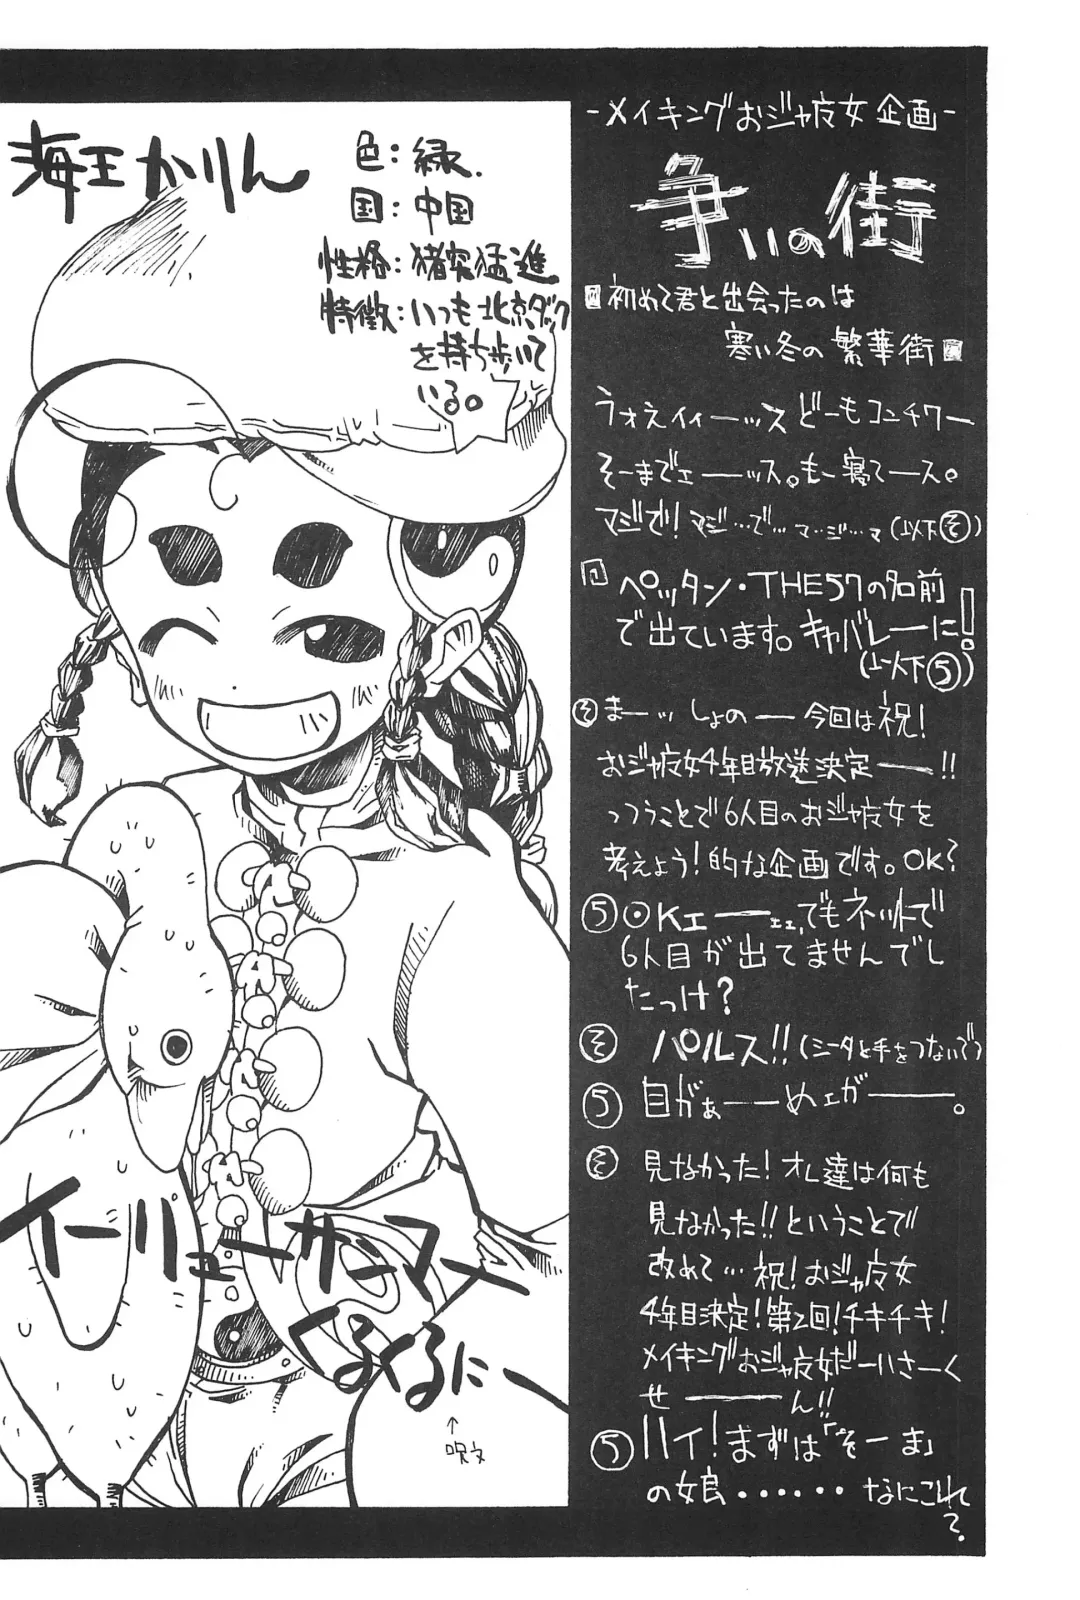 -メイキングおジャ魔女企画-
争いの街
初めて君と出会ったのは
寒い冬の繁華街
うぉぇィィーッス どーもコンチワー
そーまでェーッス。もー寝てース。
マジで! マジ…で… マ…ジ…マ (以下そ)
ペッタン・THE57の名前
で出ています。キャバレーに!
(以下5)
そ まーッ しょのー 今回は祝!
おジャ魔女4年目放送決定ー!!
っつうことで6人目のおジャ魔女を
考えよう!的な企画です。OK?
5 OKェーェェ,でもネットで
6人目が出てませんでし
たっけ?
そ バルス!! (シータと手をつないで)
5 目がぁーーめェがーー。
そ 見なかった! オレ達は何も
見なかった!! ということで
改めて… 祝! おジャ魔女
4年目決定! 第2回! チキチキ!
メイキングおジャ魔女だーいさーく
せーーん!!
5 ハイ! まずは「そーま」
の娘・・・・・・なにこれ
?
海王かりん
色:緑.
国:中国
性格:猪突猛進
特徴:いつも北京ダック
を持ち歩いて
いる。
イーリューサーマー
くるくるにー
↑
呪文